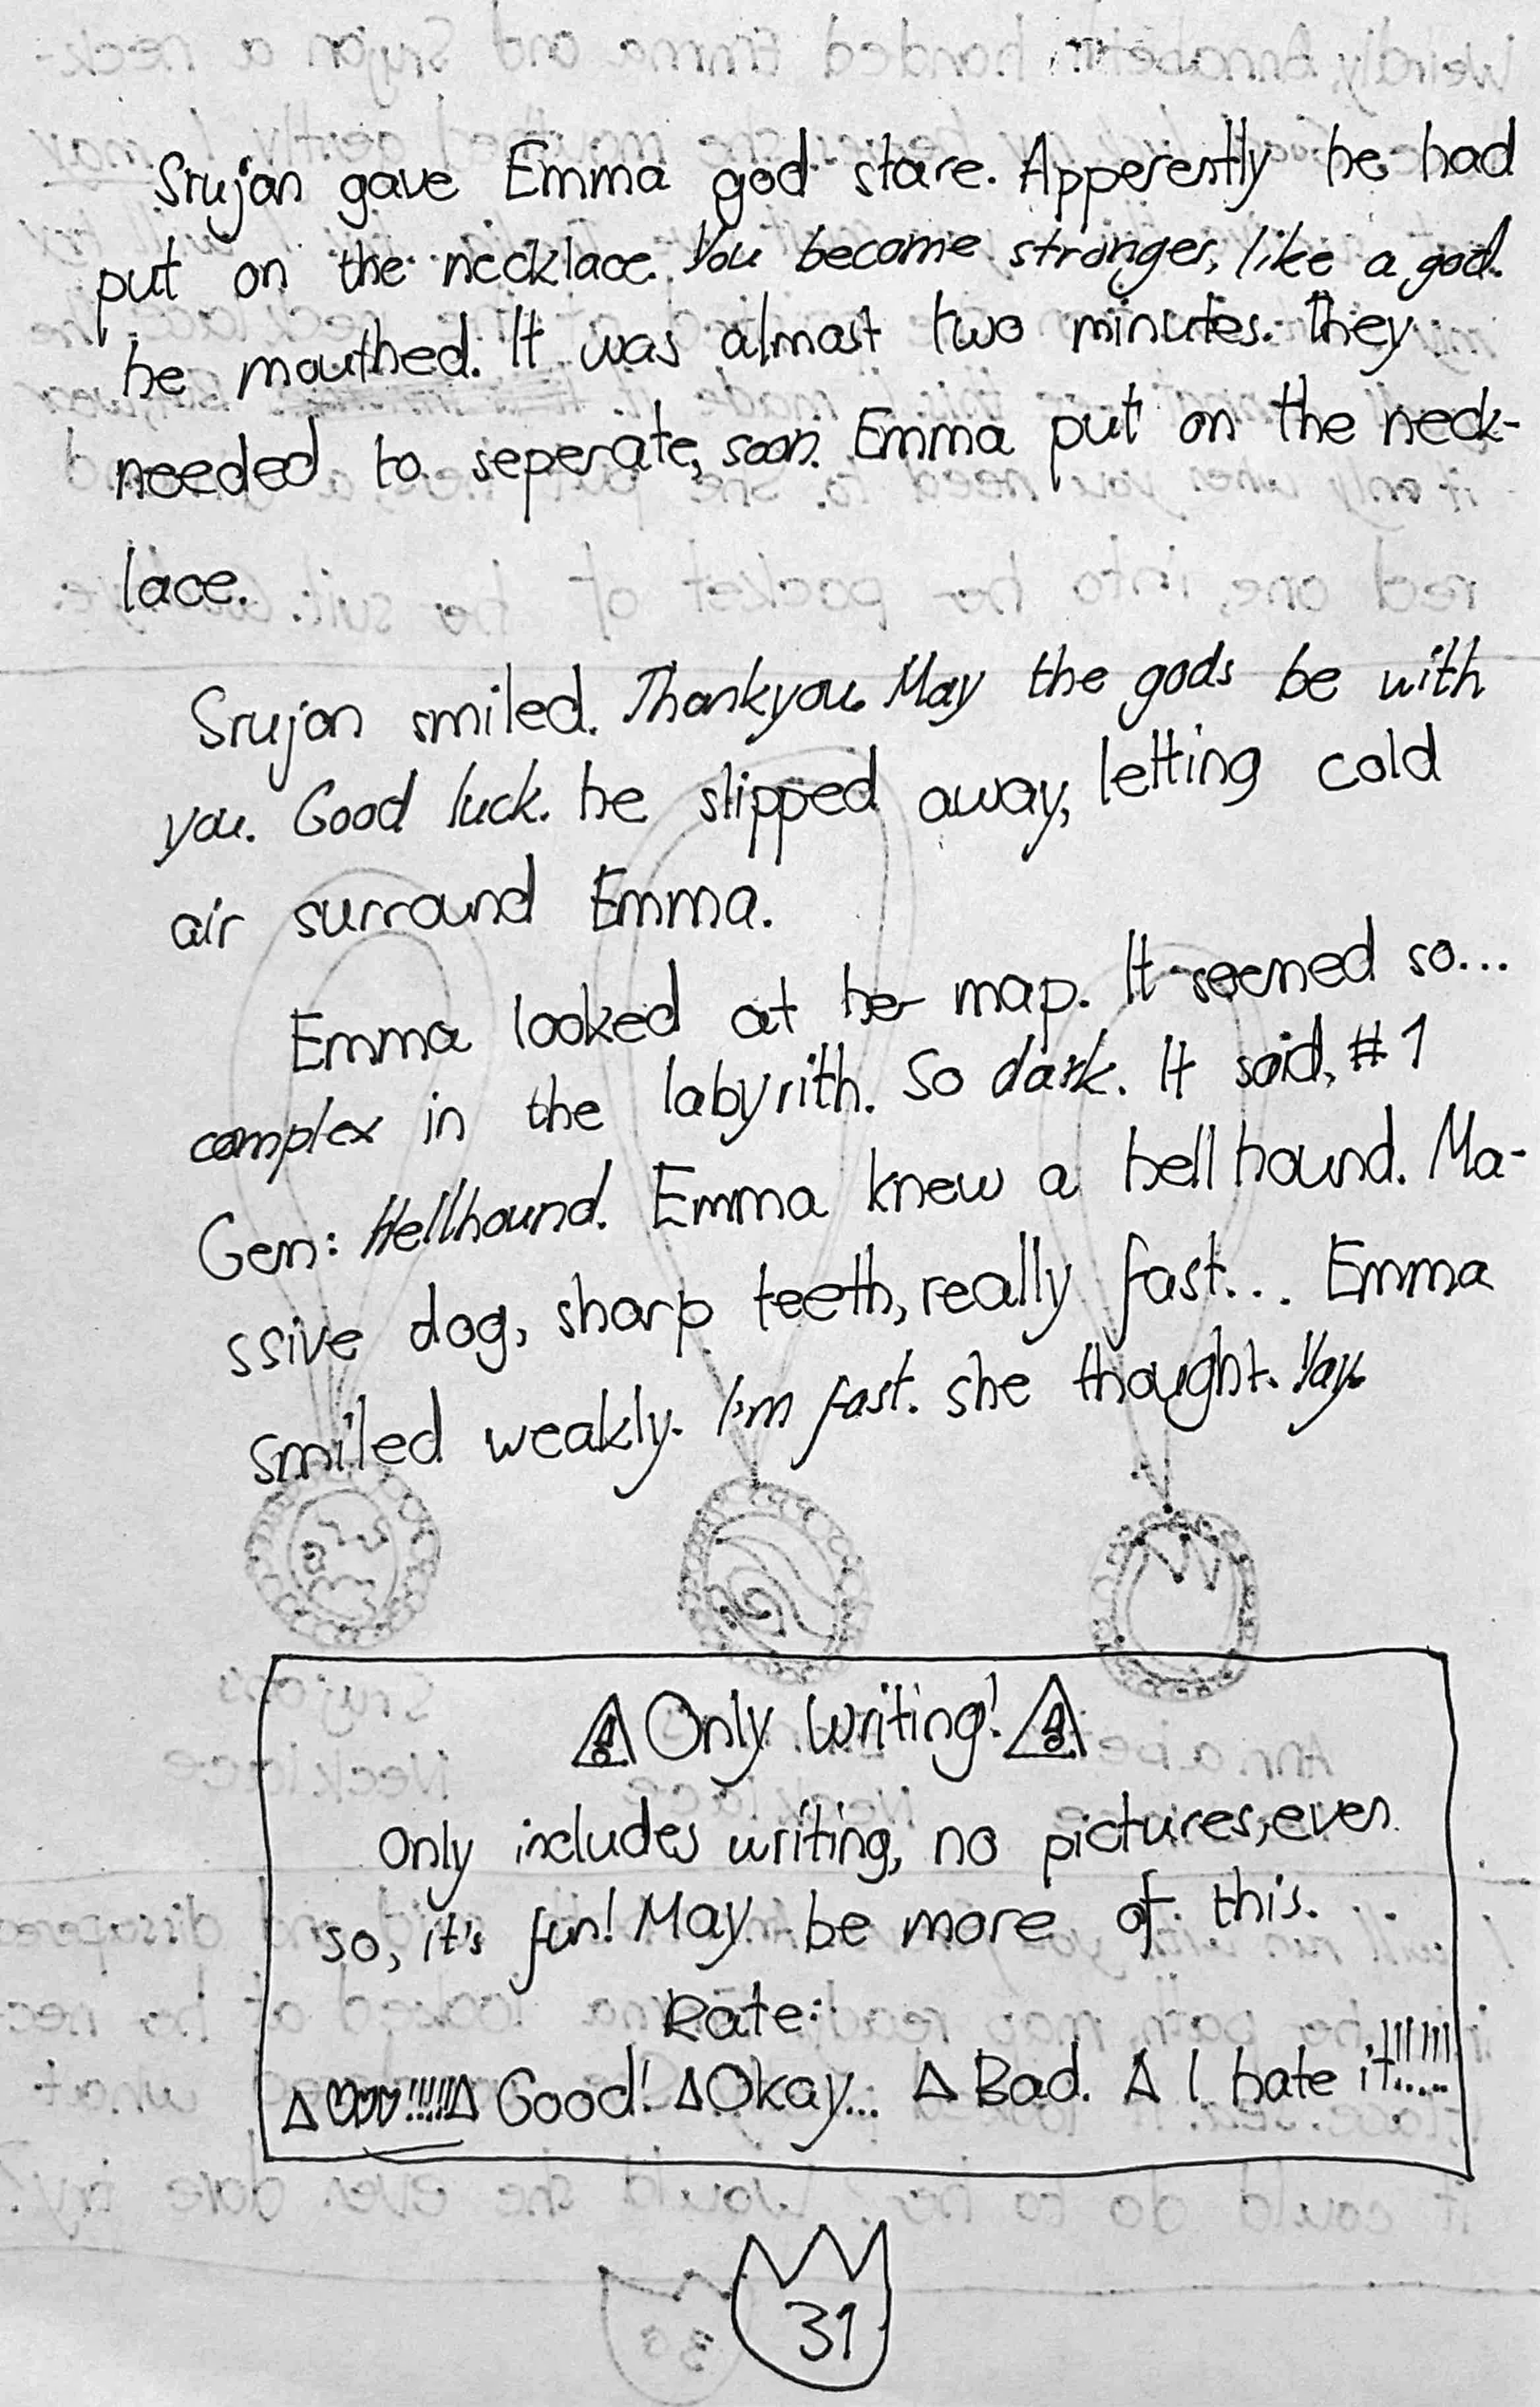 Srujan gave Emma god stare. Apperently he had
put on the necklace. You become stronger, like a god.
he mouthed. It was almost two minutes. They
needed to seperate, soon. Emma put on the neck-
lace.
Srujan smiled. Thankyou. May the gods be with
you. Good luck. he slipped away, letting cold
air surround Emma.
Emma looked at her map. It seemed so...
complex in the labyrith. So dark. It said, #1
Gen: Hellhound. Emma knew a hell hound. Ma-
ssive dog, sharp teeth, really fast... Emma
smiled weakly. I'm fast. she thought. Yay.
Only Writing!
Only includes writing, no pictures, even
so, it's fun! May be more of this.
Rate:
Good! Okay... Bad. I hate it!!!!!!
31